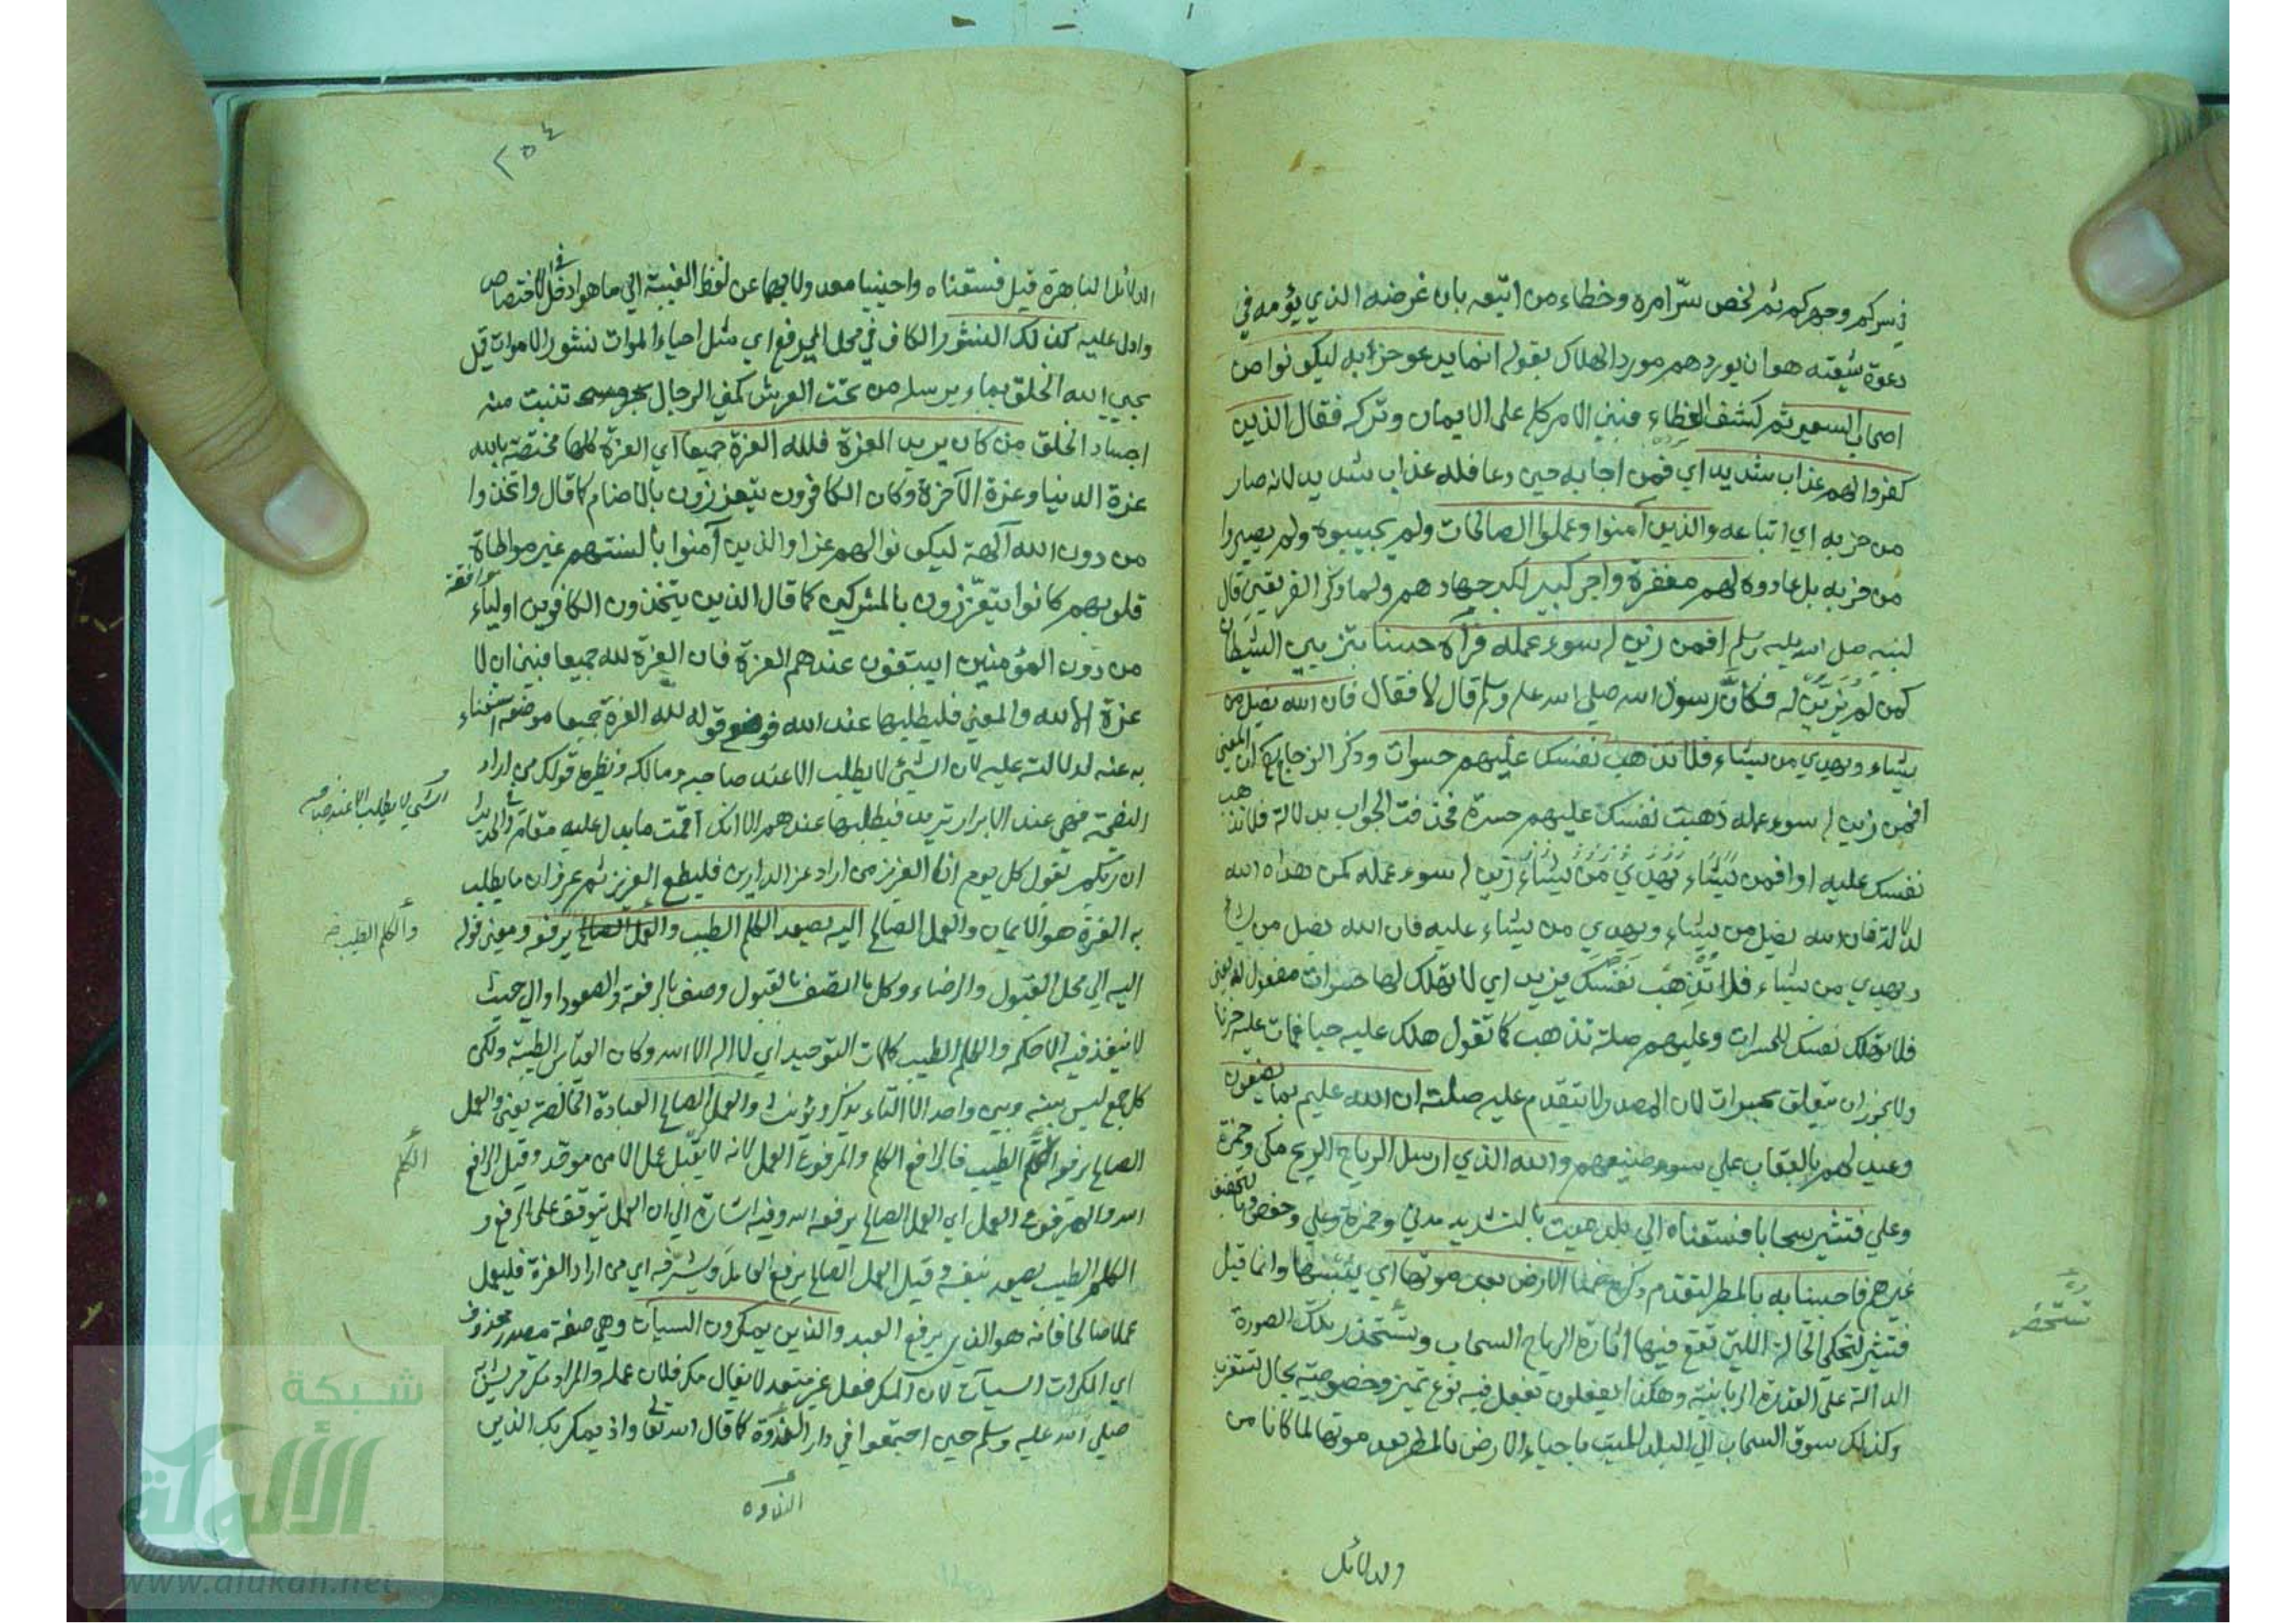 في سركم وجهركم ثم لخص سرّ امره وخطاء من اتبعه بان غرضه الذي يؤمه في
دعوة شيعته هو ان يوردهم مورد الهلاك بقوله انما يدعو حزبه ليكونوا من
اصحاب السعير ثم كشف الغطاء فبنى الامر كله على الايمان وتركه فقال الذين
كفروا لهم عذاب شديد اي فمن اجابه حين دعا فله عذاب شديد لانه صار
من حزبه اي اتباعه والذين آمنوا وعملوا الصالحات ولم يجيبوه ولم يصيروا
من حزبه بل عادوه لهم مغفرة واجر كبير لكبر جهادهم ولما ذكر الفريقين قال
لنبيه صلى الله عليه وسلم افمن زين له سوء عمله فرآه حسنا بتزيين الشيطان
كمن لم يزين له فكانّ رسول الله صلى الله عليه وسلم قال لا فقال فان الله يضل من
يشاء ويهدي من يشاء فلا تذهب نفسك عليهم حسرات وذكر الزجاج ان المعنى
افمن زين له سوء عمله ذهبت نفسك عليهم حسرة فحذفت الجواب بدلالة فلا تذهب
نفسك عليه او افمن زين له سوء عمله كمن هداه الله
لدلالة فان الله يضل من يشاء ويهدي من يشاء عليه فان الله يضل من يشاء
ويهدي من يشاء فلا تذهب نفسك يزيد اي لا تهلكها حسرات مفعول له يعني
فلا تهلك نفسك للحسرات وعليهم صلة تذهب كما تقول هلك عليه حبا ومات عليه حزنا
ولا يجوز ان يتعلق بحسرات لان المصدر لا تتقدم عليه صلته ان الله عليم بما يصنعون
وعيد لهم بالعقاب على سوء صنيعهم والله الذي ارسل الرياح الريح مكي وحمزة
وعلي فتثير سحابا فسقناه الى بلد ميت بالتشديد مدني وحمزة وعلي وحفص وبالتخفيف
غيرهم فاحيينا به بالمطر لتقدم ذكره ضمنا الارض بعد موتها اي يبسها وانما قيل
فتثير لتحكي الحالة التي تقع فيها اثارة الرياح السحاب وتستحذر تلك الصورة
الدالة على القدرة الربانية وهكذا يفعلون بفعل فيه نوع تميز وخصوصية بحال تستغرب
وكذلك سوق السحاب الى البلد الميت باحياء الارض بالمطر بعد موتها لما كانا من
تستحضر
والدلائل
٢٥٤
الدلائل الباهرة قيل فسقناه واحيينا معدولا بهما عن لفظ الغيبة الى ما هو ادخل في الاختصاص
وادل عليه كذلك النشور الكاف في محل الرفع اي مثل احياء الموات نشور الاموات قيل
يحيي الله الخلق بماء يرسله من تحت العرش كمني الرجال تنبت منه
اجساد الخلق من كان يريد العزة فلله العزة جميعا اي العزة كلها مختصة بالله
عزة الدنيا وعزة الآخرة وكان الكافرون يتعززون بالاصنام كما قال واتخذوا
من دون الله آلهة ليكونوا لهم عزا والذين آمنوا بالسنتهم غير مواطاة
قلوبهم كانوا يتعززون بالمشركين كما قال الذين يتخذون الكافرين اولياء
موافقة
من دون المؤمنين ايبتغون عندهم العزة فان العزة لله جميعا فبين ان لا
عزة الا لله والمعنى فليطلبها عند الله فوضع قوله لله العزة جميعا موضعه استغناء
به عنه لدلالته عليه لان الشيء لا يطلب الا عند صاحبه ومالكه ونظيره قولك من اراد
الشيء لا يطلب الا عند صاحبه
النصيحة فهي عند الابرار تريد فليطلبها عندهم الا انك اقمت ما يدل عليه مقامه وفي الحديث
ان ربكم يقول كل يوم انا العزيز من اراد عز الدارين فليطع العزيز ثم عرف ان ما يطلب
به العزة هو الايمان والعمل الصالح اليه يصعد الكلم الطيب والعمل الصالح يرفعه ومعنى قوله
والكلم الطيب
اليه الى محل القبول والرضاء وكل ما اتصف بالقبول وصف بالرفعة والصعود او الى حيث
لا ينفذ فيه الا حكمه والكلم الطيب كلمات التوحيد اي لا اله الا الله وكان القياس الطيبة ولكن
كل جمع ليس بينه وبين واحده الا التاء يذكر ويؤنث والعمل الصالح العبادة الخالصة يعني والعمل
الصالح يرفعه الكلم الطيب فالرافع الكلم والمرفوع العمل لانه لا يقبل عمل الا من موحد وقيل الرافع
الكلم
الله والمرفوع العمل اي العمل الصالح يرفعه الله وفيه اشارة الى ان العمل يتوقف على الرفع و
الكلم الطيب يصعد بنفسه وقيل العمل الصالح يرفع العامل ويشرفه اي من اراد العزة فليعمل
عملا صالحا فانه هو الذي يرفع العبد والذين يمكرون السيآت وهي صفة مصدر محذوف
اي المكرات السيآت لان المكر فعل غير متعد لا يقال مكر فلان عمله والمراد مكر قريش به
صلى الله عليه وسلم حين اجتمعوا في دار الندوة كما قال الله تعالى واذ يمكر بك الذين
الندوة
شبكة
الألوكة
www.alukah.net